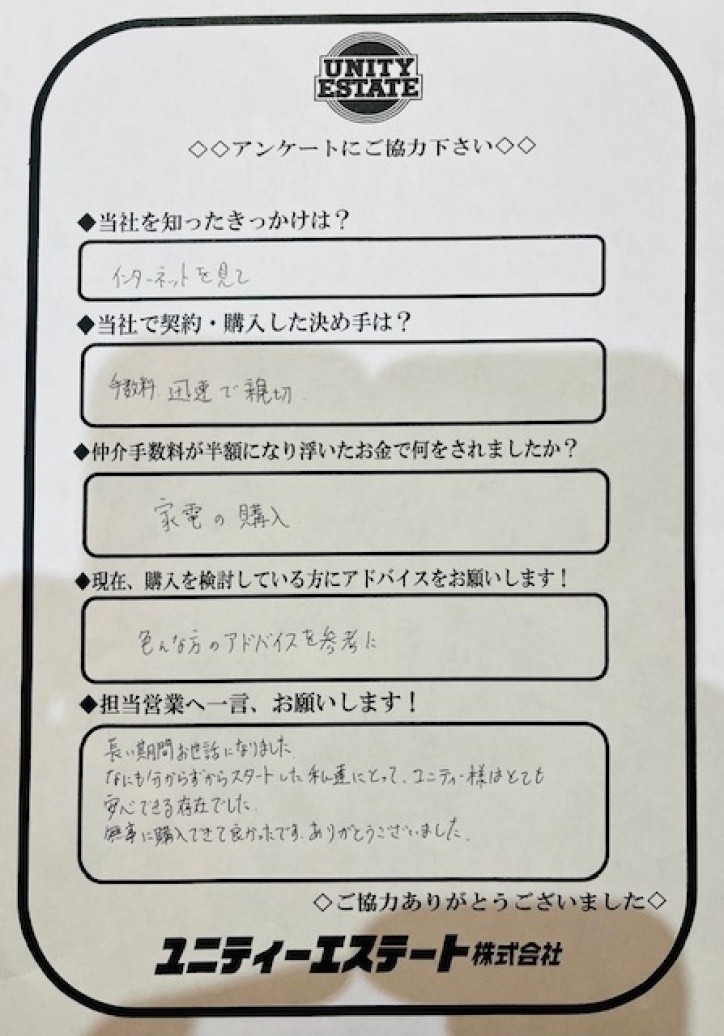 UNITY
ESTATE
◇◇アンケートにご協力下さい◇◇
◆当社を知ったきっかけは？
インターネットを見て
◆当社で契約・購入した決め手は？
手数料. 迅速で親切.
◆仲介手数料が半額になり浮いたお金で何をされましたか？
家電の購入
◆現在、購入を検討している方にアドバイスをお願いします！
色んな方のアドバイスを参考に
◆担当営業へ一言、お願いします！
長い期間お世話になりました.
なにも分からずからスタートした私達にとって、ユニティー様はとても
安心できる存在でした.
無事に購入できて良かったです. ありがとうございました.
◇ご協力ありがとうございました◇
ユニティーエステート株式会社